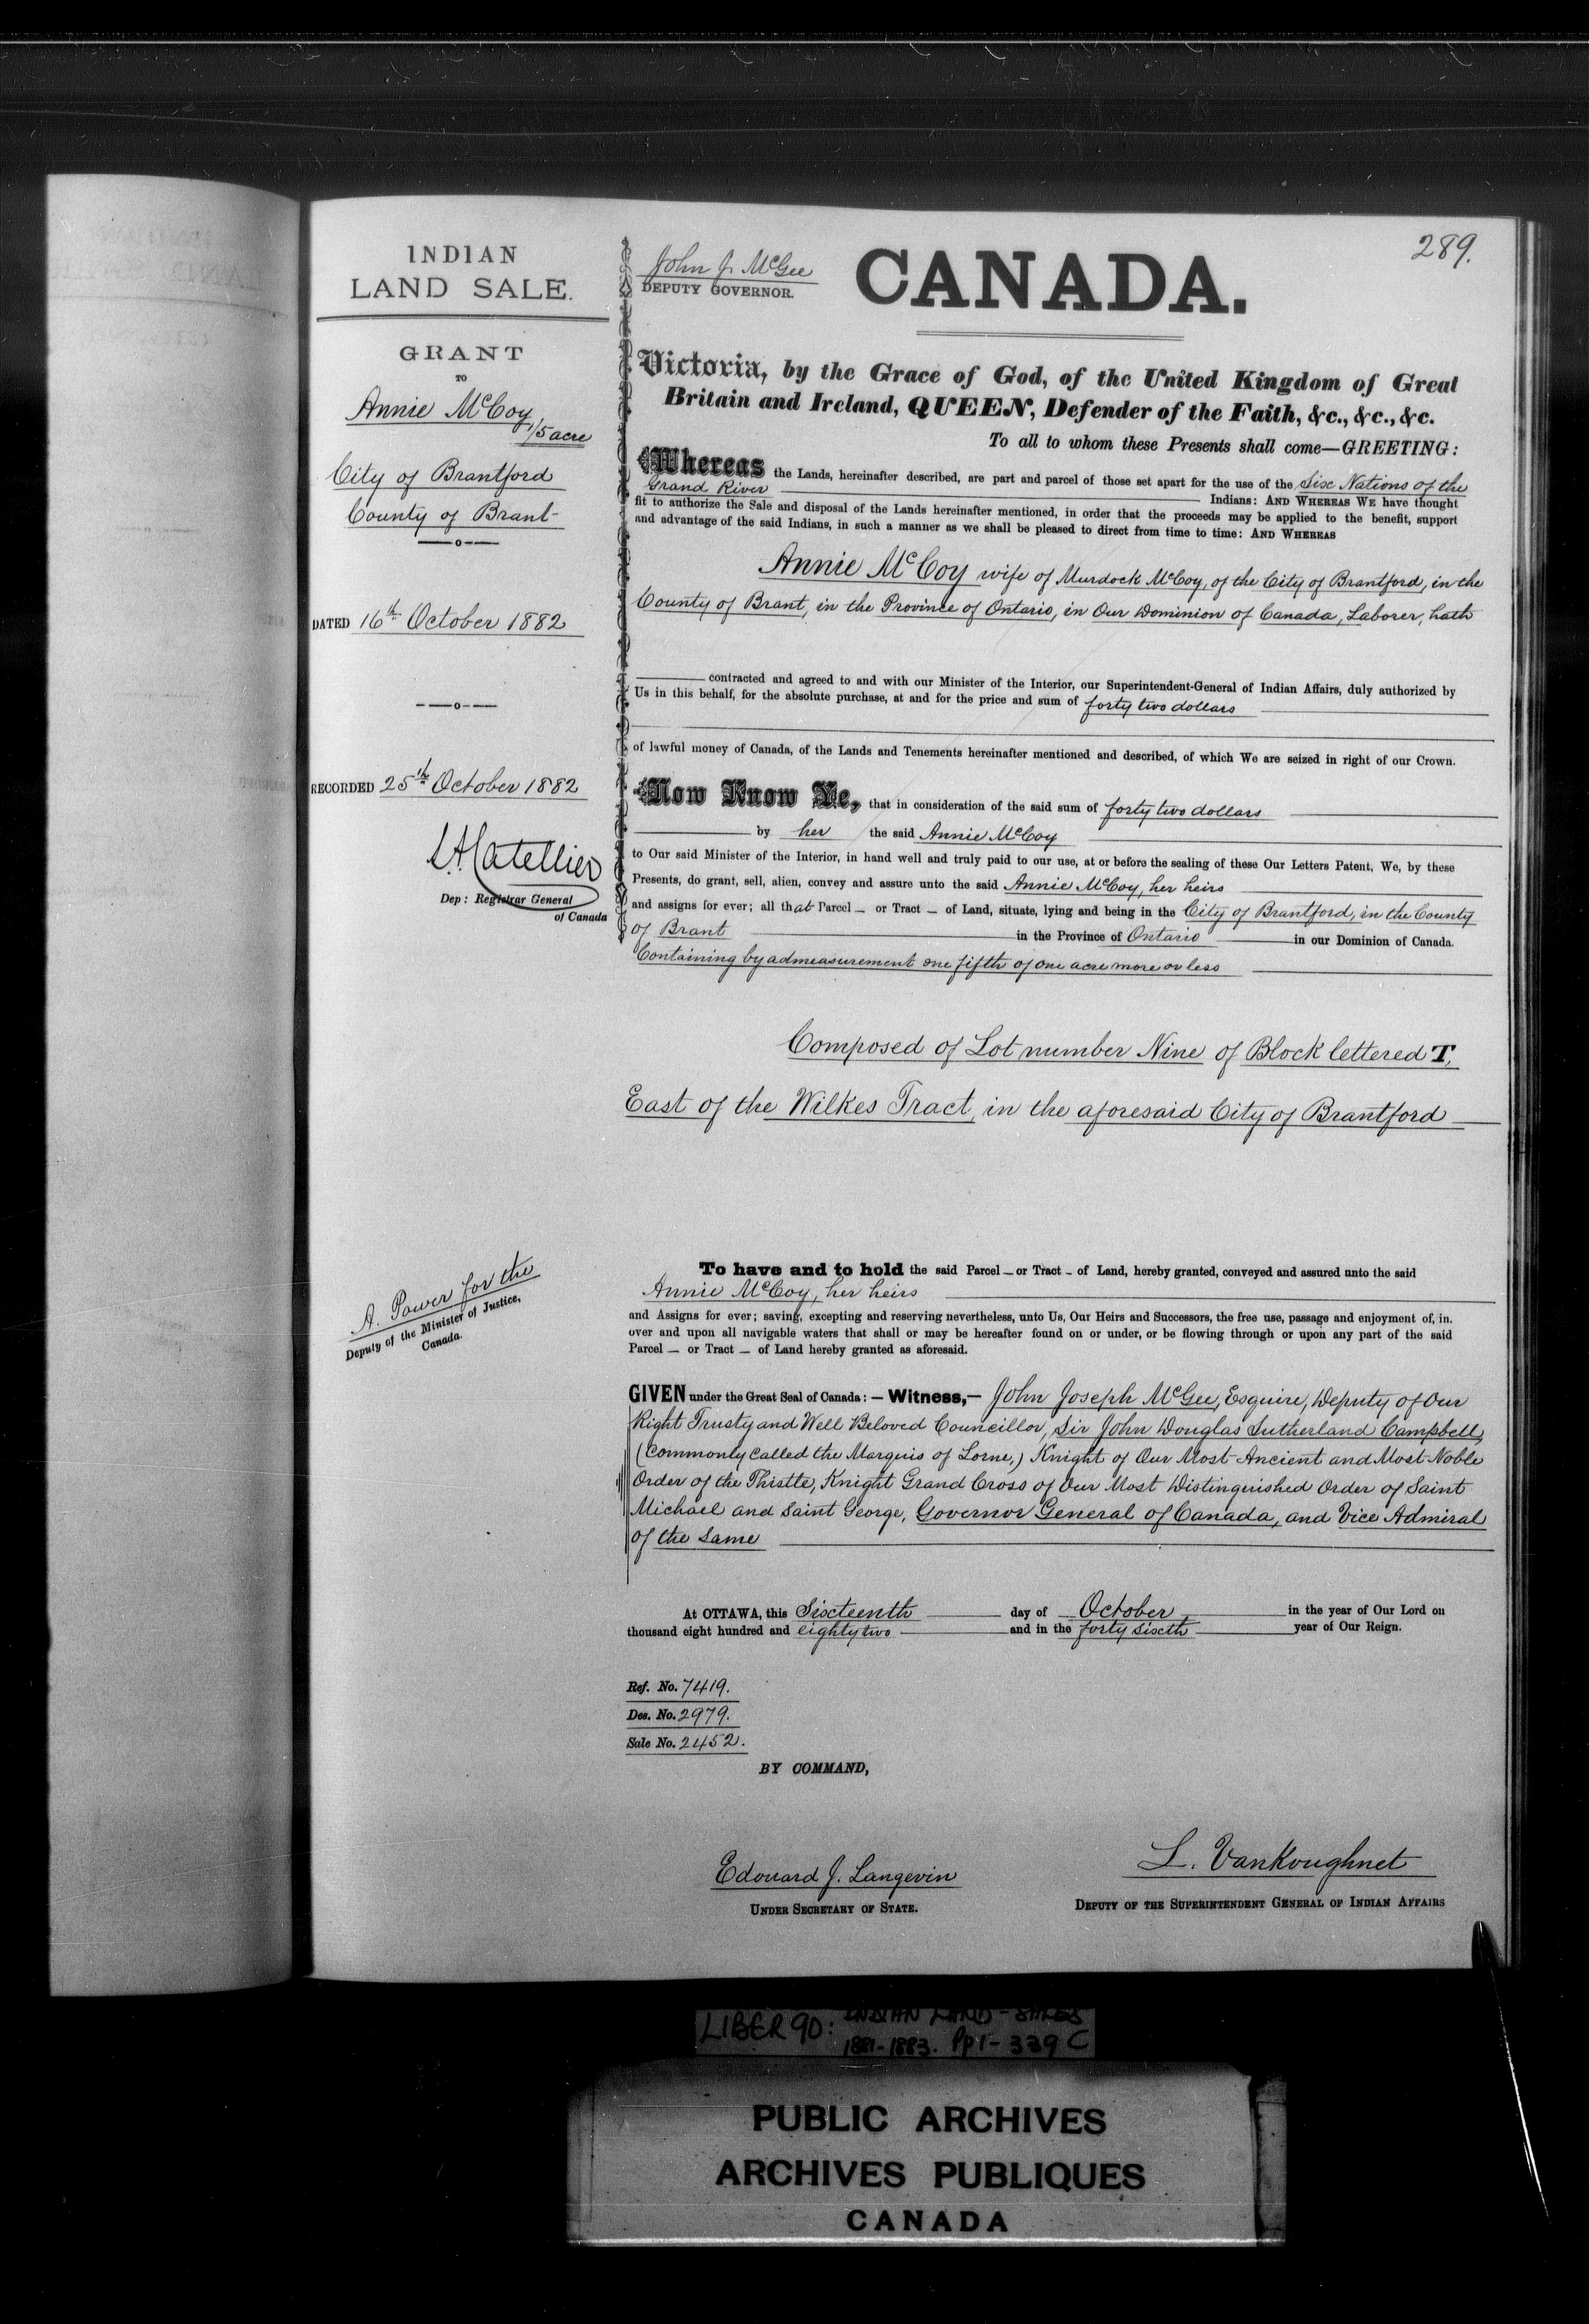 289.
INDIAN
LAND SALE.
GRANT
TO
Annie McCoy
1/5 acre
City of Brantford
County of Brant
DATED 16th October 1882
RECORDED 25th October 1882
L.A. Catellier
Dep: Registrar General
of Canada
A. Power for the
Deputy of the Minister of Justice,
Canada.
John J. McGee
DEPUTY GOVERNOR.
CANADA.
Victoria, by the Grace of God, of the United Kingdom of Great
Britain and Ireland, QUEEN, Defender of the Faith, &c., &c., &c.
To all to whom these Presents shall come—GREETING:
Whereas the Lands, hereinafter described, are part and parcel of those set apart for the use of the Six Nations of the
Grand River Indians: AND WHEREAS WE have thought
fit to authorize the Sale and disposal of the Lands hereinafter mentioned, in order that the proceeds may be applied to the benefit, support
and advantage of the said Indians, in such a manner as we shall be pleased to direct from time to time: AND WHEREAS
Annie McCoy wife of Murdock McCoy, of the City of Brantford, in the
County of Brant, in the Province of Ontario, in Our Dominion of Canada, Laborer, hath
contracted and agreed to and with our Minister of the Interior, our Superintendent-General of Indian Affairs, duly authorized by
Us in this behalf, for the absolute purchase, at and for the price and sum of forty two dollars
of lawful money of Canada, of the Lands and Tenements hereinafter mentioned and described, of which We are seized in right of our Crown.
Now Know Ye, that in consideration of the said sum of forty two dollars
by her the said Annie McCoy
to Our said Minister of the Interior, in hand well and truly paid to our use, at or before the sealing of these Our Letters Patent, We, by these
Presents, do grant, sell, alien, convey and assure unto the said Annie McCoy, her heirs
and assigns for ever; all that Parcel — or Tract — of Land, situate, lying and being in the City of Brantford, in the County
of Brant in the Province of Ontario in our Dominion of Canada.
Containing by admeasurement one fifth of one acre more or less
Composed of Lot number Nine of Block lettered T,
East of the Wilkes Tract, in the aforesaid City of Brantford
To have and to hold the said Parcel — or Tract — of Land, hereby granted, conveyed and assured unto the said
Annie McCoy, her heirs
and Assigns for ever; saving, excepting and reserving nevertheless, unto Us, Our Heirs and Successors, the free use, passage and enjoyment of, in,
over and upon all navigable waters that shall or may be hereafter found on or under, or be flowing through or upon any part of the said
Parcel — or Tract — of Land hereby granted as aforesaid.
GIVEN under the Great Seal of Canada: — Witness,— John Joseph McGee, Esquire, Deputy of Our
Right Trusty and Well Beloved Councillor, Sir John Douglas Sutherland Campbell,
(commonly called the Marquis of Lorne,) Knight of Our Most Ancient and Most Noble
Order of the Thistle, Knight Grand Cross of Our Most Distinguished Order of Saint
Michael and Saint George, Governor General of Canada, and Vice Admiral
of the same
At OTTAWA, this Sixteenth day of October, in the year of Our Lord on
thousand eight hundred and eighty two and in the forty sixth year of Our Reign.
Ref. No. 7419.
Des. No. 2979.
Sale No. 2452.
BY COMMAND,
Edouard J. Langevin
UNDER SECRETARY OF STATE.
L. VanKoughnet
DEPUTY OF THE SUPERINTENDENT GENERAL OF INDIAN AFFAIRS
LIBER 90: INDIAN LAND - SALES
1881-1883. Pp 1-339 C
PUBLIC ARCHIVES
ARCHIVES PUBLIQUES
CANADA